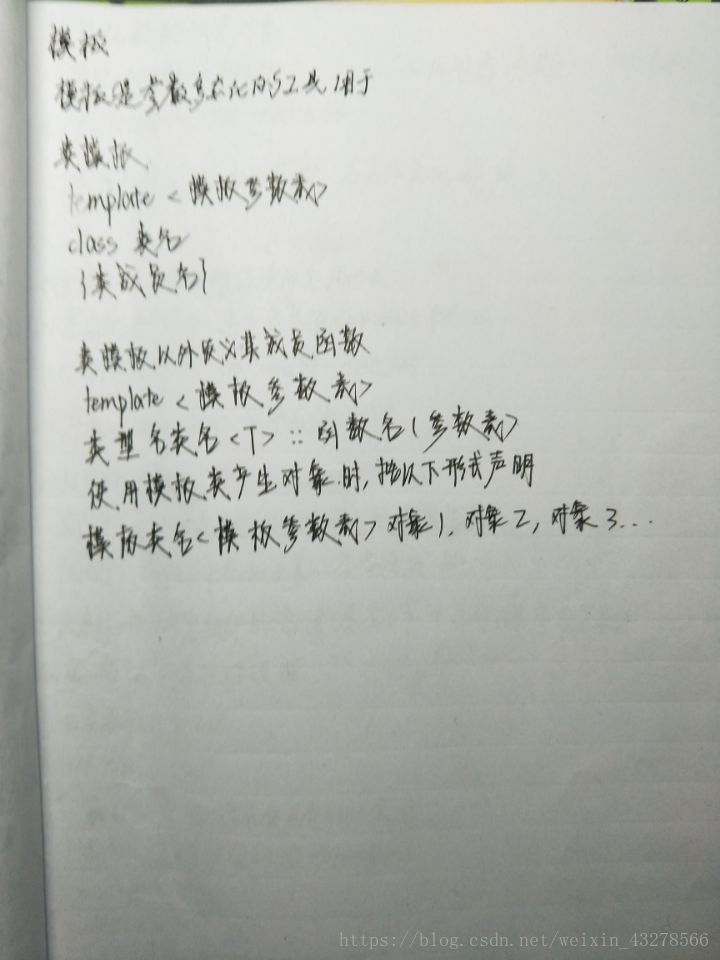 模板
模板是参数多态化的工具,用于
类模板
template <模板参数表>
class 类名
{类成员名}
类模板以外定义其成员函数
template <模板参数表>
类型名类名<T>::函数名(参数表)
使用模板类产生对象时,按以下形式声明
模板类名<模板参数表>对象1,对象2,对象3...
https://blog.csdn.net/weixin_43278566